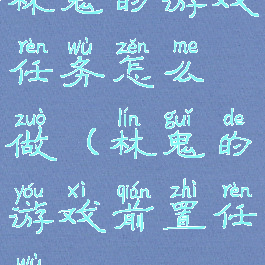 林鬼的游戏
rèn wù zěn me
任务怎么
zuò lín guǐ de
做（林鬼的
yóu xì qián zhì rèn
游戏前置任
wù